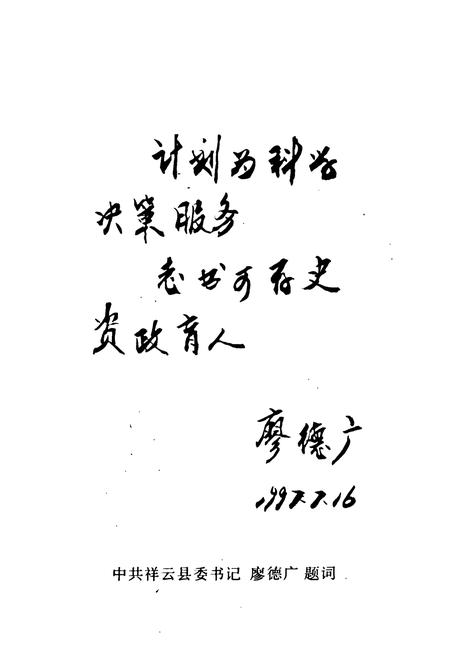 计划为科学
决策服务
志书可存史
资政育人
廖德广
1997.7.16
中共祥云县委书记 廖德广 题词